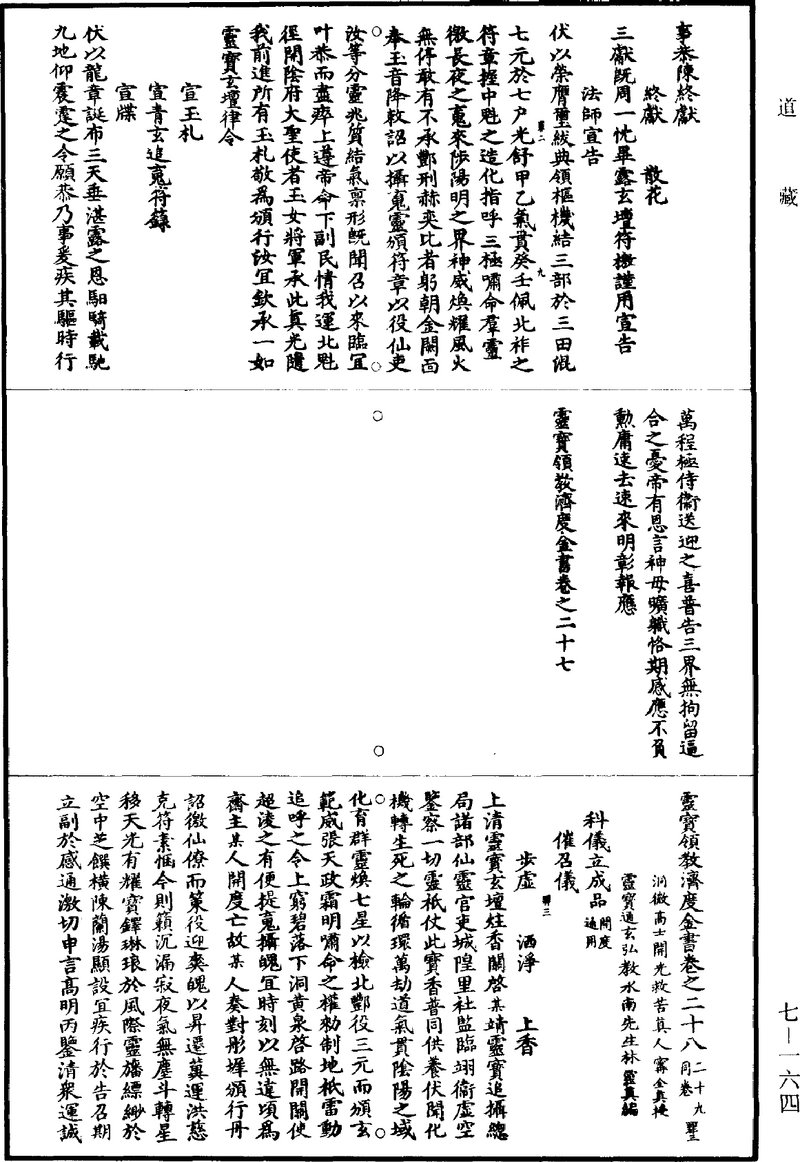 道藏
事恭陳終獻
終獻　散花
三獻既周一忱畢露玄壇符檄謹用宣告
法師宣告
伏以榮膺璽紱典領樞機結三部於三田混
七元於七戶光舒甲乙氣貫癸壬佩北祚之
符章握中魁之造化指呼三極嘯命羣靈
徹長夜之冤來陟陽明之界神威煥耀風火
無停敢有不承酆刑赫奕比者躬朝金闕面
奉玉音降敕詔以攝冤靈頒符章以役仙吏
汝等分靈兆質結氣稟形既聞召以來臨宜
叶恭而盡瘁上遵帝命下副民情我運北魁
徑開陰府大聖使者玉女將軍承此真光隨
我前進所有玉札敬為頒行汝宜欽承一如
靈寶玄壇律令
宣玉札
宣青玄追冤符籙
宣牒
伏以龍章誕布三天垂湛露之恩馹騎載馳
九地仰震霆之令願恭乃事爰疾其驅時行
萬程極侍衞送迎之喜普告三界無拘留逼
合之憂帝有恩言神毋曠職恪期感應不負
勳庸速去速來明彰報應
靈寶領教濟度金書卷之二十七
靈寶領教濟度金書卷之二十八 二十九同卷
洞微高士開光救苦真人甯全真授
靈寶通玄弘教水南先生林靈真編
科儀立成品 開度通用
催召儀
步虛　洒淨　上香
上清靈寶玄壇炷香關啓某靖靈寶追攝總
局諸部仙靈官吏城隍里社監臨翊衞虛空
鑒察一切靈祇仗此寶香普同供養伏聞化
機轉生死之輪循環萬劫道氣貫陰陽之域
化育群靈煥七星以檢北酆役三元而頒玄
範威張天政霜明嘯命之權勑制地祇雷動
追呼之令上窮碧落下洞黃泉啓路開關使
超淩之有便提冤攝魄宜時刻以無違頃為
齋主某人開度亡故某人奏對彤墀頒行丹
詔徵仙僚而策役迎爽魄以昇遷冀運洪慈
克符素悃今則籟沉漏寂夜氣無塵斗轉星
移天光有耀寶鐸琳琅於風際靈旛縹緲於
空中芝饌橫陳蘭湯顯設宜疾行於告召期
立副於感通激切申言高明丙鑒清衆運誠
七－一六四